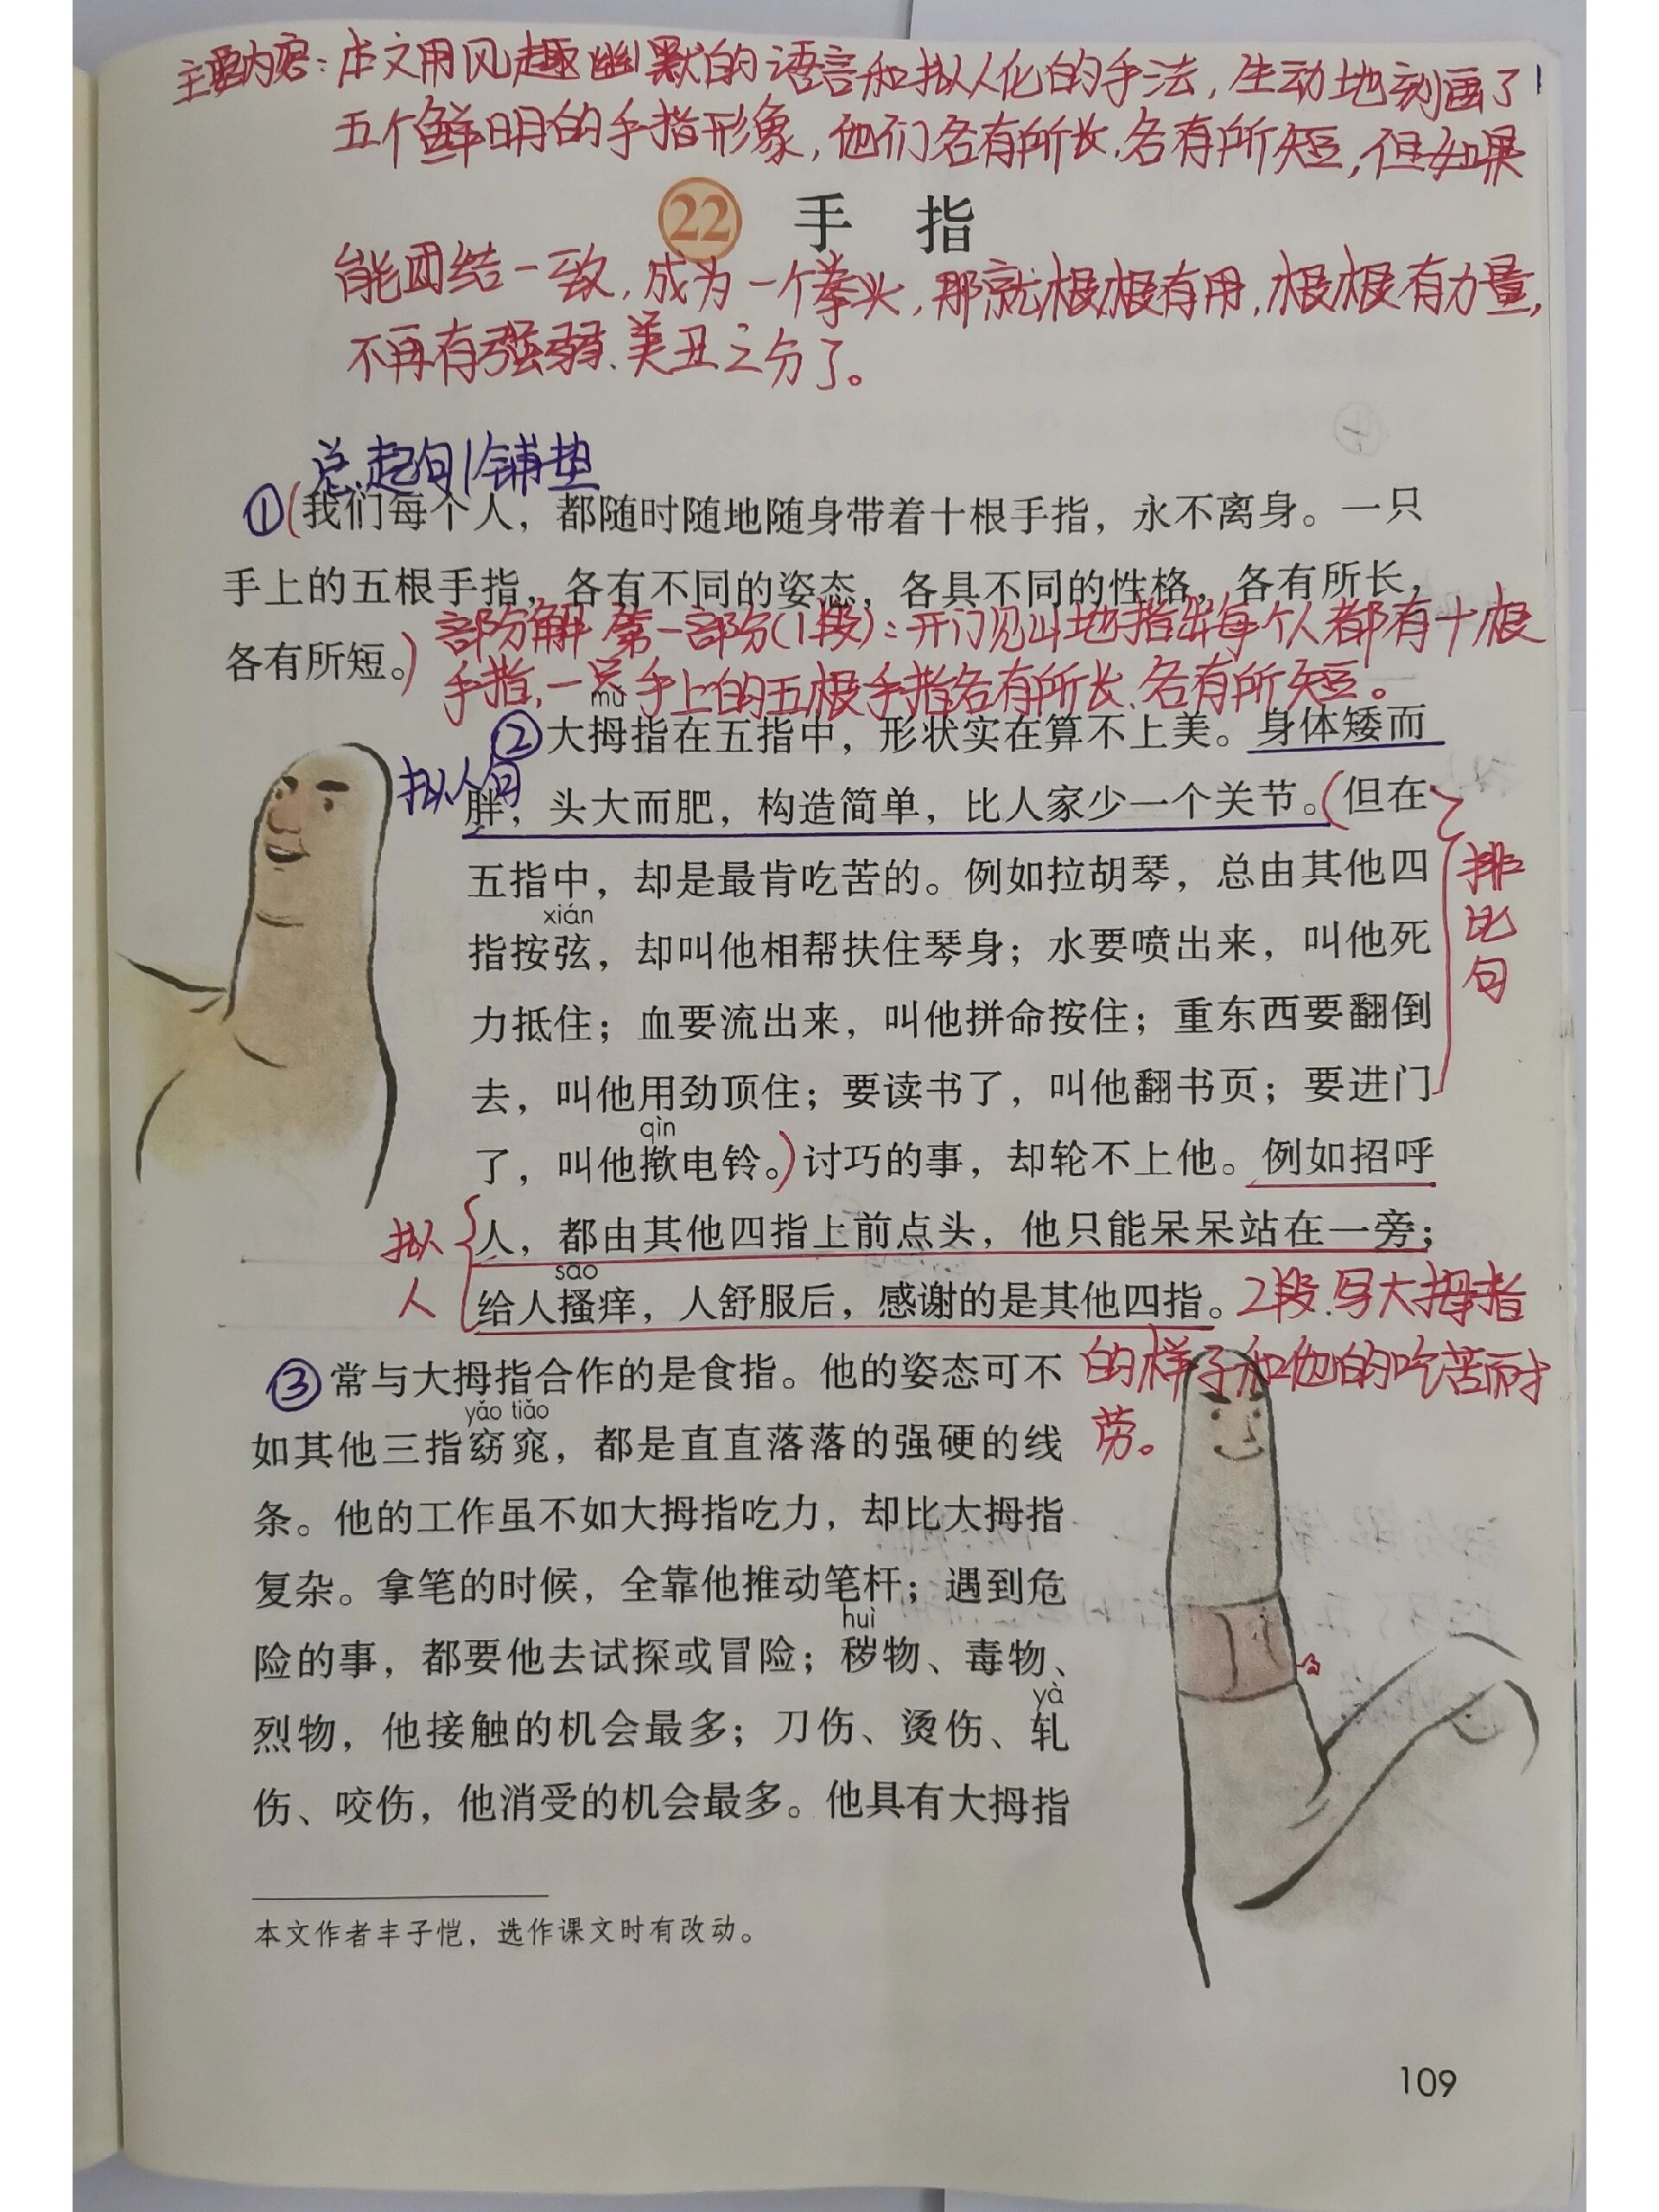 主要内容：本文用风趣幽默的语言和拟人化的手法，生动地刻画了
五个鲜明的手指形象，他们各有所长、各有所短，但如果
22 手指
能团结一致，成为一个拳头，那就根根有用，根根有力量，
不再有强弱、美丑之分了。
总起句 铺垫
①(我们每个人，都随时随地随身带着十根手指，永不离身。一只
手上的五根手指，各有不同的姿态，各具不同的性格，各有所长，
各有所短。)
部分解 第一部分(1段)：开门见山地指出每个人都有十根
手指，一只手上的五根手指各有所长、各有所短。
mǔ
②大拇指在五指中，形状实在算不上美。身体矮而
拟人句
胖，头大而肥，构造简单，比人家少一个关节。(但在
五指中，却是最肯吃苦的。例如拉胡琴，总由其他四
xián
指按弦，却叫他相帮扶住琴身；水要喷出来，叫他死
力抵住；血要流出来，叫他拼命按住；重东西要翻倒
去，叫他用劲顶住；要读书了，叫他翻书页；要进门
qìn
了，叫他揿电铃。)讨巧的事，却轮不上他。例如招呼
排比句
人，都由其他四指上前点头，他只能呆呆站在一旁；
sāo
给人搔痒，人舒服后，感谢的是其他四指。
拟人
2段.写大拇指
的样子和他的吃苦耐
劳。
③常与大拇指合作的是食指。他的姿态可不
yǎo tiǎo
如其他三指窈窕，都是直直落落的强硬的线
条。他的工作虽不如大拇指吃力，却比大拇指
复杂。拿笔的时候，全靠他推动笔杆；遇到危
huì
险的事，都要他去试探或冒险；秽物、毒物、
yà
烈物，他接触的机会最多；刀伤、烫伤、轧
伤、咬伤，他消受的机会最多。他具有大拇指
本文作者丰子恺，选作课文时有改动。
109